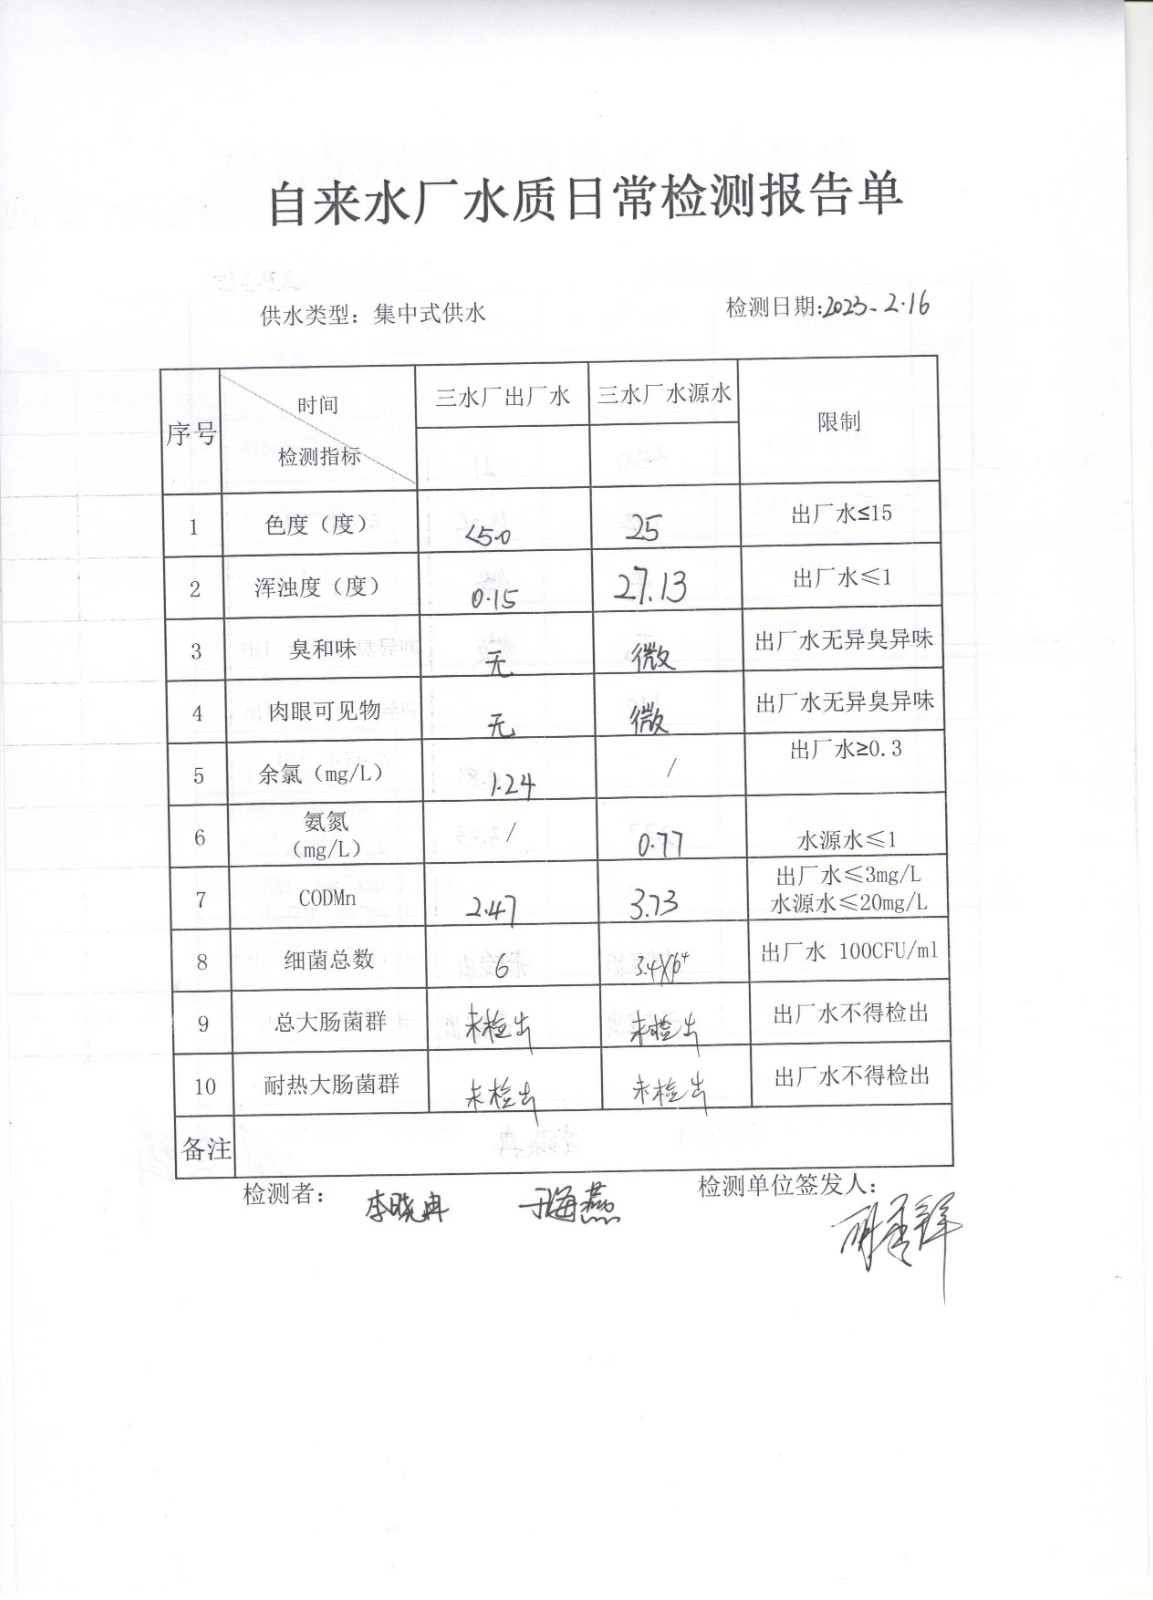 自来水厂水质日常检测报告单
供水类型：集中式供水 检测日期：2023.2.16
序号 时间 检测指标 三水厂出厂水 三水厂水源水 限制
1 色度（度） <5.0 25 出厂水≤15
2 浑浊度（度） 0.15 27.13 出厂水≤1
3 臭和味 无 微 出厂水无异臭异味
4 肉眼可见物 无 微 出厂水无异臭异味
5 余氯（mg/L） 1.24 / 出厂水≥0.3
6 氨氮（mg/L） / 0.77 水源水≤1
7 CODMn 2.47 3.73 出厂水≤3mg/L
水源水≤20mg/L
8 细菌总数 6 出厂水 100CFU/ml
9 总大肠菌群 未检出 未检出 出厂水不得检出
10 耐热大肠菌群 未检出 未检出 出厂水不得检出
备注
检测者： 李晓冉 于海燕 检测单位签发人：